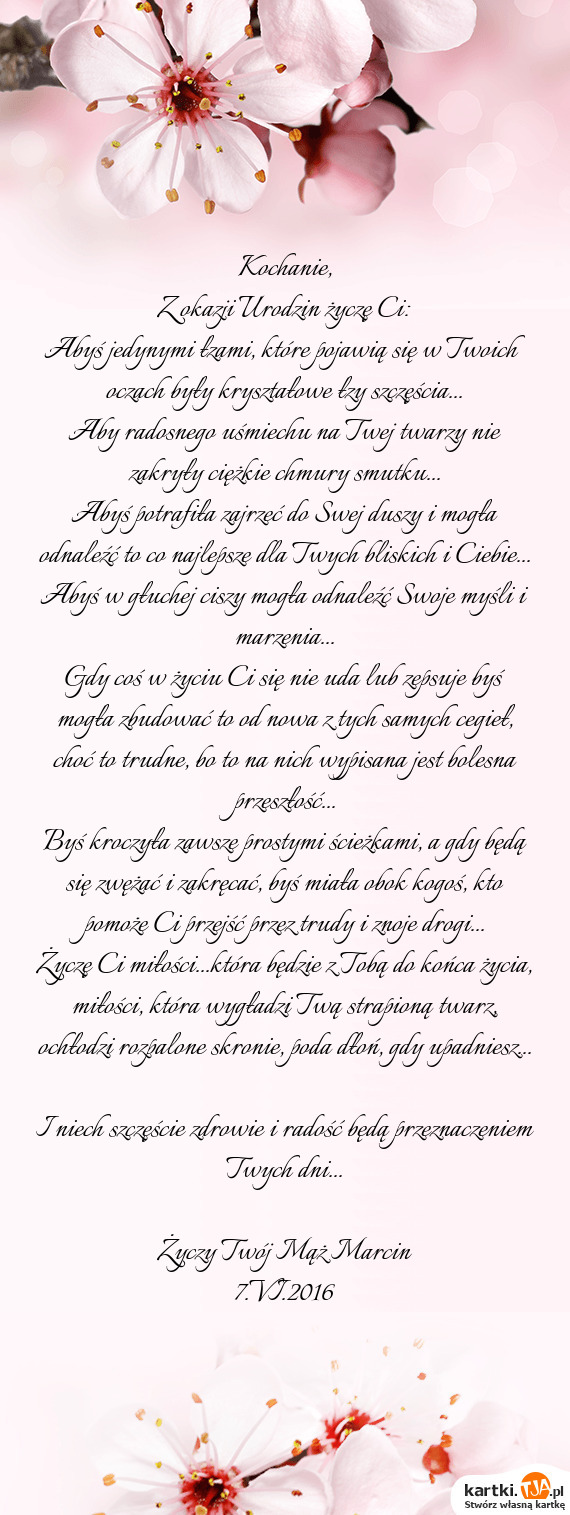 Kochanie,
Z okazji Urodzin życzę Ci:
Abyś jedynymi łzami, które pojawią się w Twoich
oczach były kryształowe łzy szczęścia...
Aby radosnego uśmiechu na Twej twarzy nie
zakryły ciężkie chmury smutku...
Abyś potrafiła zajrzeć do Swej duszy i mogła
odnaleźć to co najlepsze dla Twych bliskich i Ciebie...
Abyś w głuchej ciszy mogła odnaleźć Swoje myśli i
marzenia...
Gdy coś w życiu Ci się nie uda lub zepsuje byś
mogła zbudować to od nowa z tych samych cegieł,
choć to trudne, bo to na nich wypisana jest bolesna
przeszłość...
Byś kroczyła zawsze prostymi ścieżkami, a gdy będą
się zwężać i zakręcać, byś miała obok kogoś, kto
pomoże Ci przejść przez trudy i znoje drogi...
Życzę Ci miłości...która będzie z Tobą do końca życia,
miłości, która wygładzi Twą strapioną twarz,
ochłodzi rozpalone skronie, poda dłoń, gdy upadniesz...
I niech szczęście zdrowie i radość będą przeznaczeniem
Twych dni...
Życzy Twój Mąż Marcin
7.VI.2016
kartki.TJA.pl
Stwórz własną kartkę